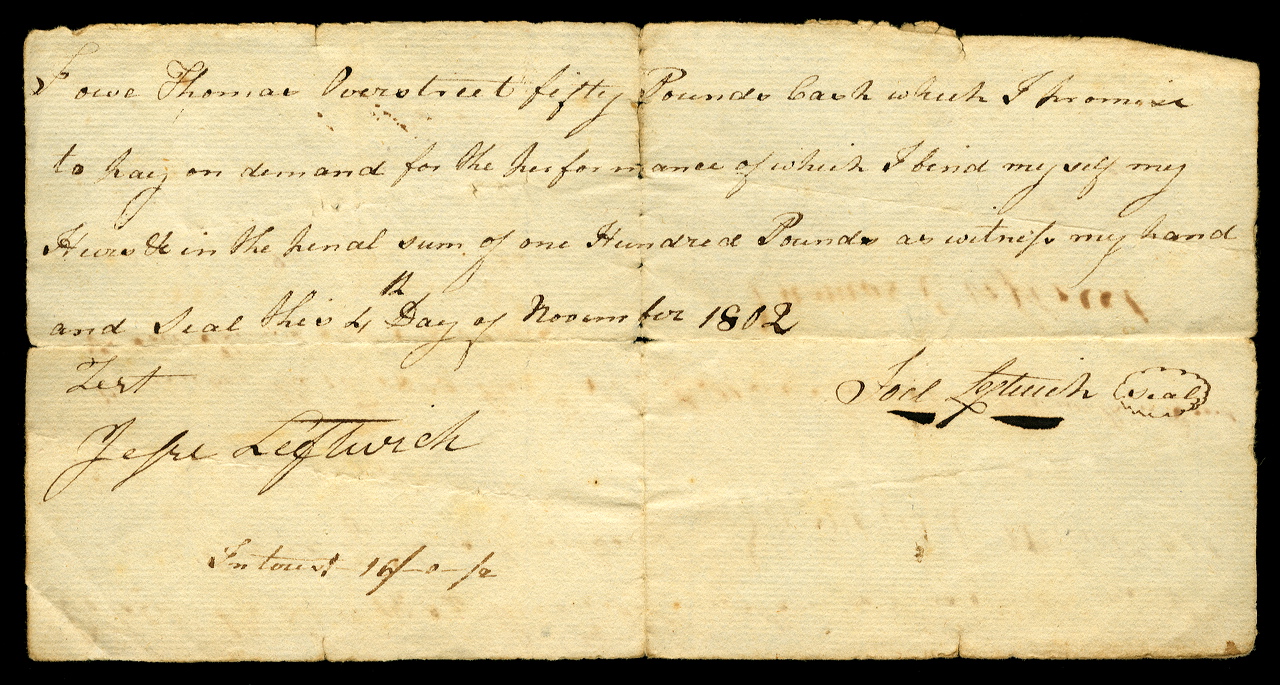 I owe Thomas Overstreet fifty Pounds Cash which I promise
to pay on demand for the performance of which I bind my self my
Heirs & in the penal sum of one Hundred Pounds as witness my hand
and Seal this 4th Day of November 1802
Test
Joel Leftwich seal
Jesse Leftwich